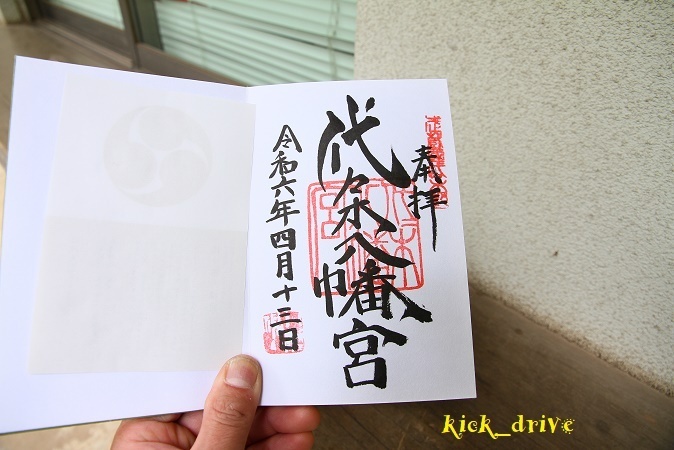 奉拝
代々木八幡宮
令和六年四月十三日
kick_drive